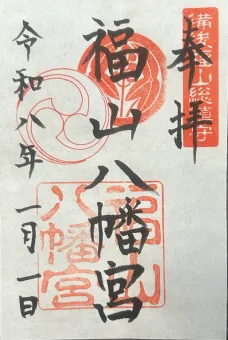 備後福山総鎮守
奉拝
福山八幡宮
福山八幡宮
令和八年一月一日